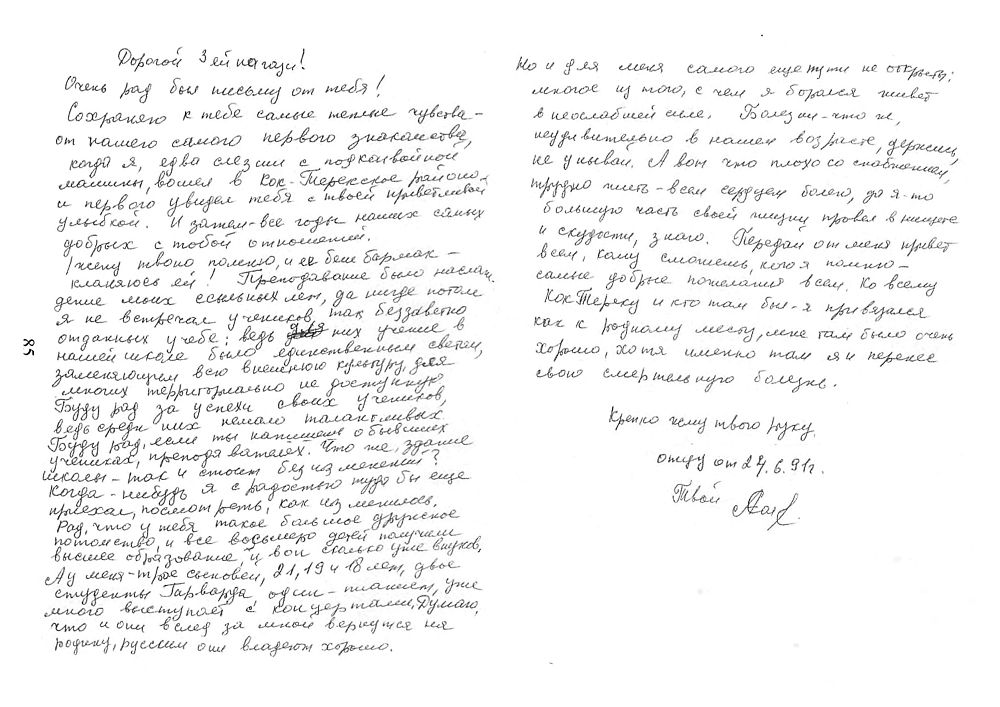 Дорогой Зейнагази!
Очень рад был письму от тебя!
Сохраняю к тебе самые теплые чувства -
от нашего самого первого знакомства,
когда я, едва слезши с подконвойной
машины, вошел в Кок-Терекское районо -
и первого увидел тебя с твоей приветливой
улыбкой. И затем - все годы наших самых
добрых с тобой отношений.
Жену твою помню, и её беш бармак -
кланяюсь ей! Преподавание было наслаж-
дение моих ссыльных лет, да нигде потом
я не встречал учеников, так беззаветно
отданных учебе: ведь для них учение в
нашей школе было единственным светом,
заменяющим всю внешнюю культуру, для
многих территориально не доступную
Буду рад за успехи своих учеников,
ведь среди них немало талантливых.
Буду рад, если ты напишешь о бывших
учениках, преподавателях. Что же, здание
школы - так и стоит без изменений?
Когда-нибудь я с радостью туда бы еще
приехал, посмотреть, как изменилось.
Рад, что у тебя такое большое дружное
потомство, и все восьмеро детей получили
высшее образование, и вон сколько уже внуков,
А у меня - трое сыновей, 21, 19 и 18 лет, двое
студенты Гарварда один - пианист, уже
много выступает с концертами, Думаю,
что и они вслед за мной вернутся на
родину, русским они владеют хорошо.
85
Но и для меня самого еще пути не открыты:
многое из того, с чем я боролся живет
в неослабшей силе. Болезни - что же,
неудивительно в нашем возрасте, держись,
не унывай. А вон что плохо со снабжением,
трудно жить - всем сердцем болею, да я-то
большую часть своей жизни провел в нищете
и скудости, знаю. Передай от меня привет
всем, кому сможешь, кого я помню -
самые добрые пожелания всем. Ко всему
Кок Тереку и кто там был - я привязался
как к родному месту, мне там было очень
хорошо, хотя именно там я и перенес
свою смертельную болезнь.
Крепко жму твою руку.
от 6.91г.
Твой